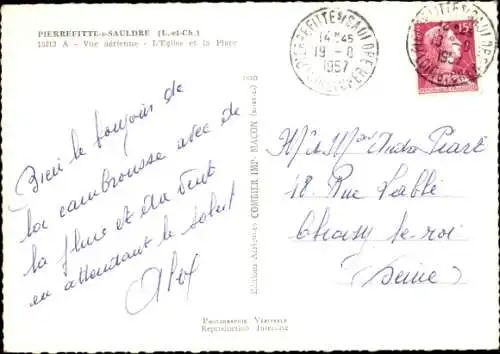 PIERREFITTE-s-SAULDRE (L.-et-Ch.)
15213 A - Vue aérienne - L'Eglise et la Place
PIERREFITTE S/SAULDRE
14 H 45
19 - 8
1957
LOIR-ET-CHER
Bien le bonjour de
la cambrousse avec de
la pluie et du vent
en attendant le soleil
Alex
Editions Aériennes COMBIER IMP. MACON
Mr & Mme André Piart
18 Rue
Choisy le-roi
(Seine)
Photographie Véritable
Reproduction Interdite